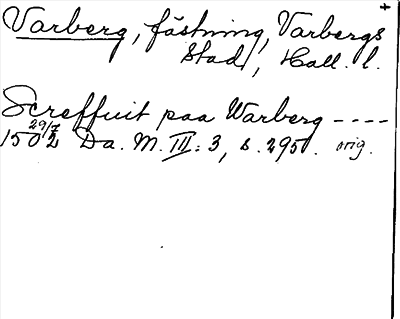 Varberg, fästning, Varbergs +
stad, Hall. l.
Screffuit paa Warberg ----
1502 29/7 Da. M. III: 3, s. 295. orig.